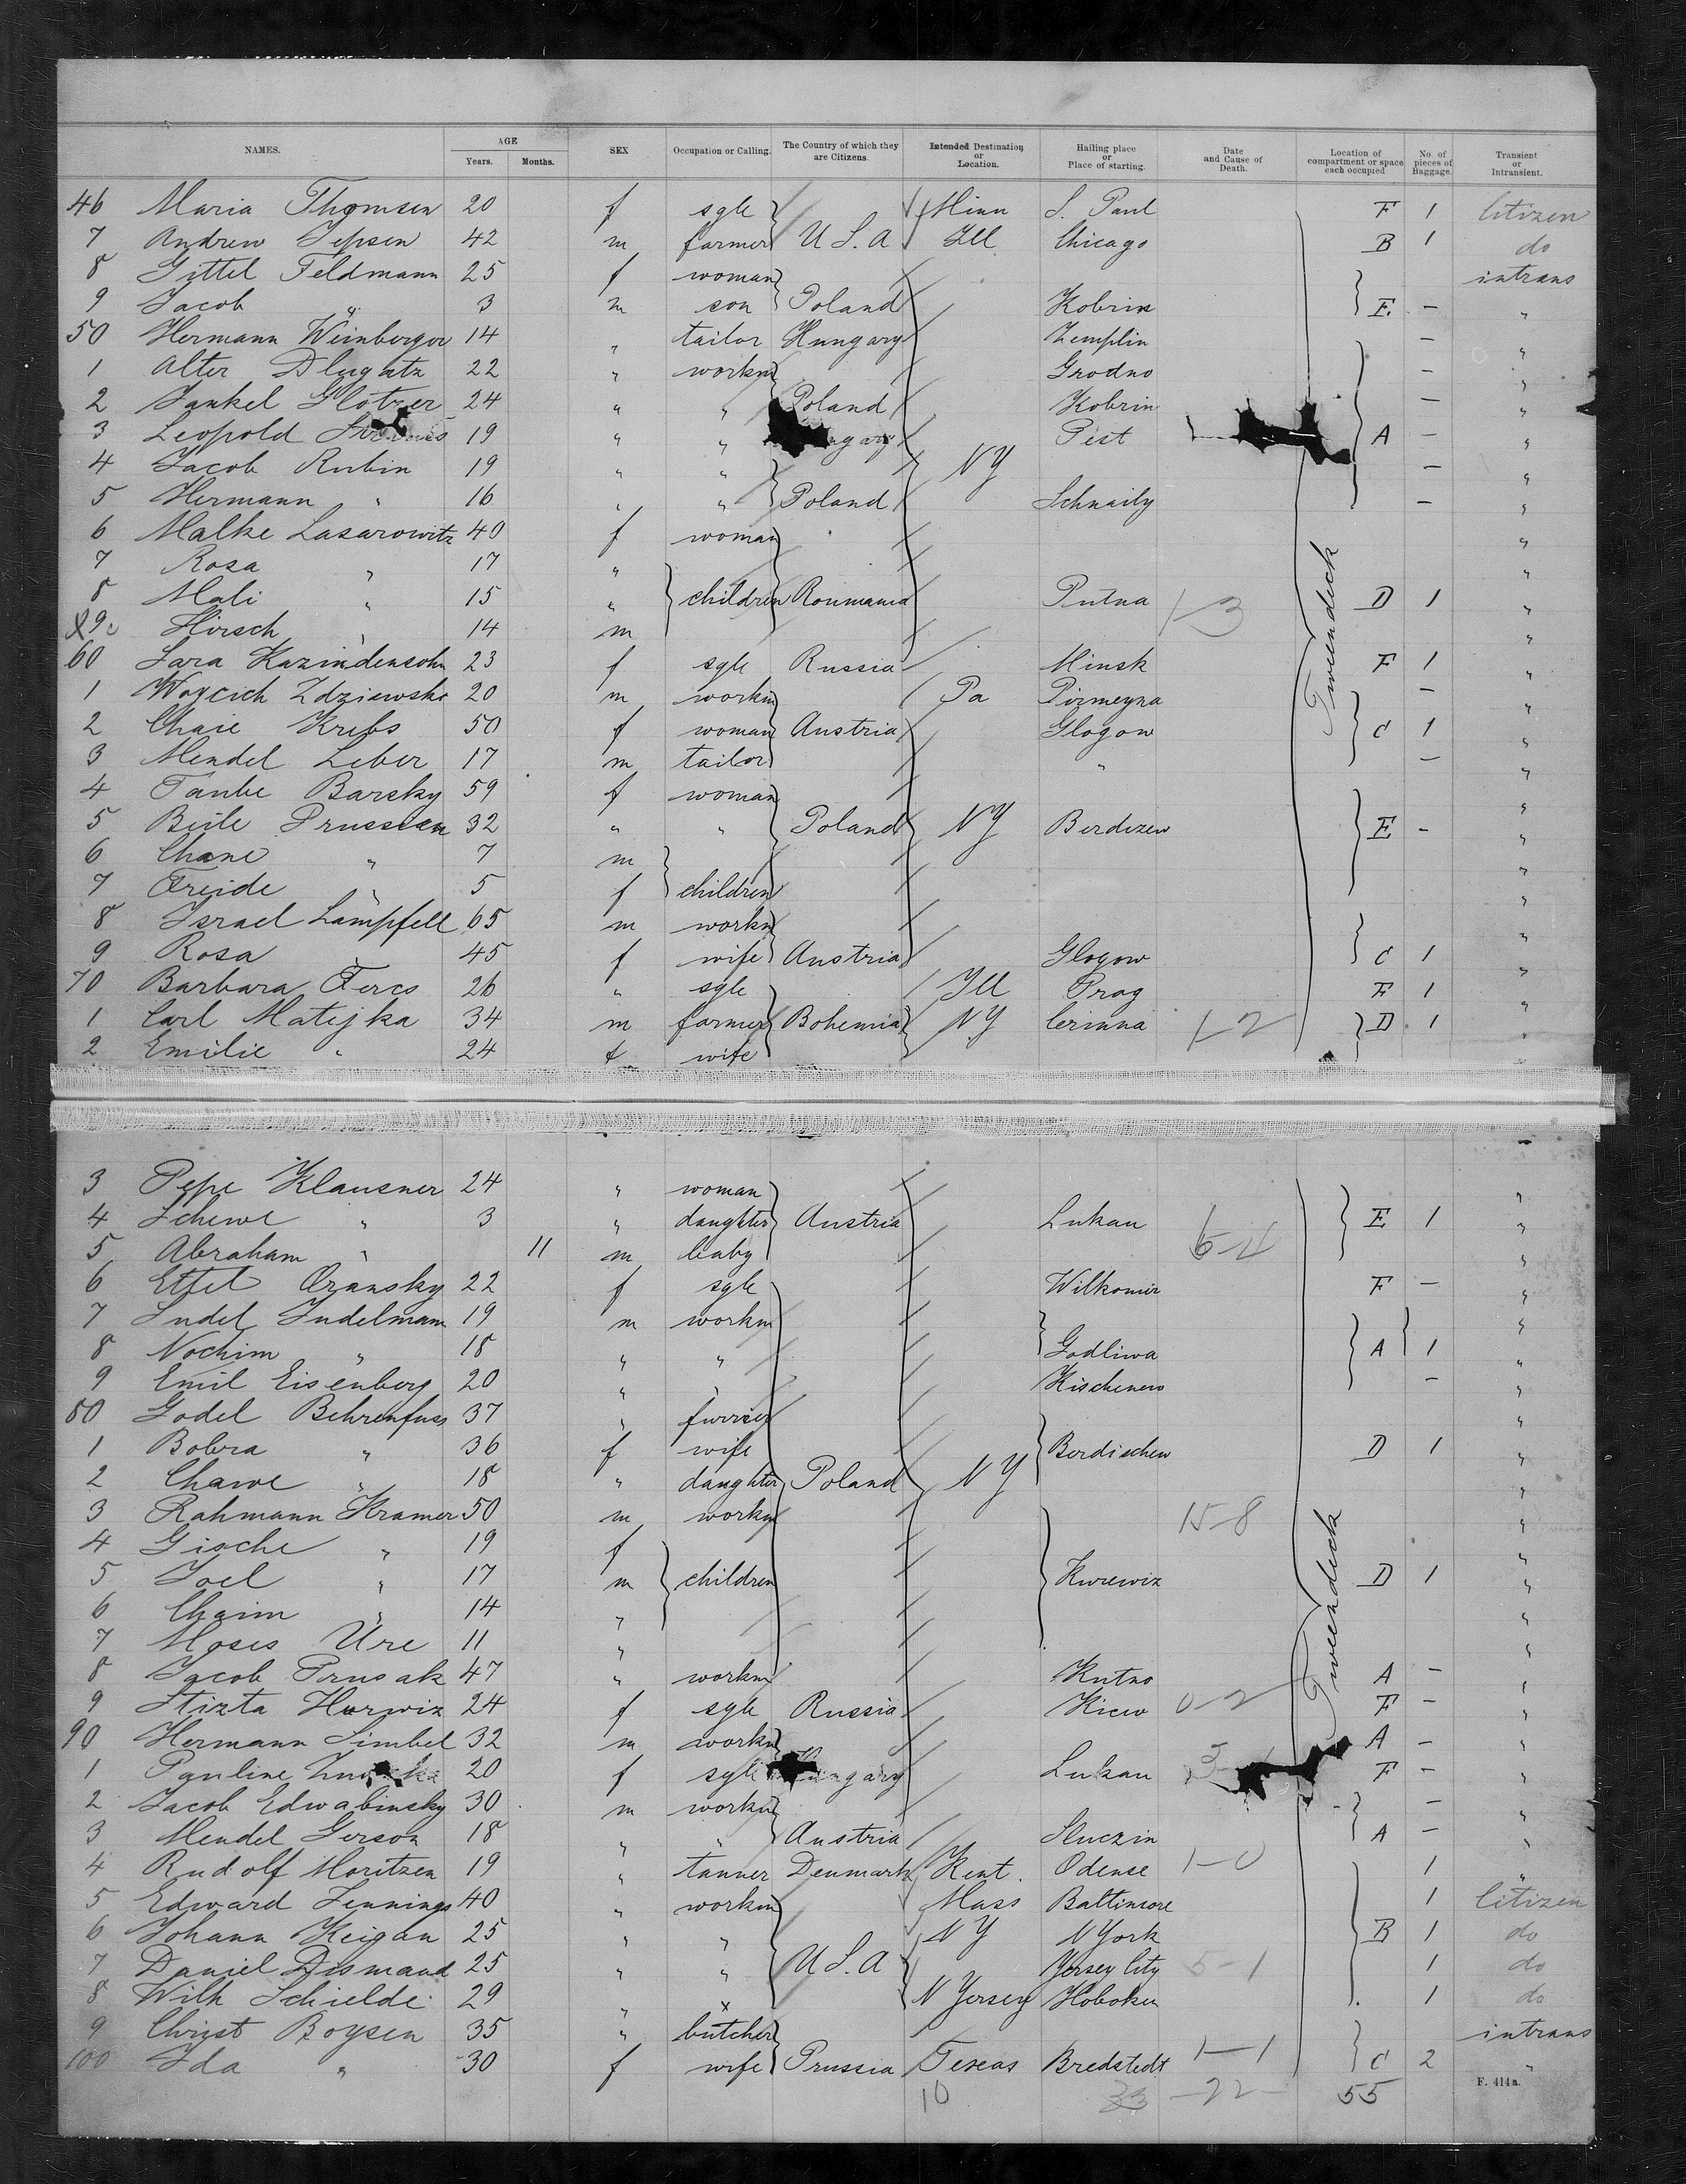 NAMES. AGE Years. Months. SEX Occupation or Calling. The Country of which they are Citizens. Intended Destination or Location. Hailing place or Place of starting. Date and Cause of Death. Location of compartment or space each occupied No. of pieces of Baggage. Transient or Intransient.
46 Maria Thomsen 20 f sgle Minn S. Paul F 1 Citizen
7 Andrew Jepsen 42 m farmer U S. A Ill Chicago B 1 do
8 Gittel Feldmann 25 f woman intrans
9 Jacob " 3 m son Poland Kobrin E. - "
50 Hermann Weinberger 14 " tailor Hungary Zemplin - "
1 Alter Dlugatz 22 " workm Grodno - "
2 Jankel Glotzer 24 " " Poland Kobrin - "
3 Leopold 19 " " Pest A - "
4 Jacob Rubin 19 " " NY - "
5 Hermann " 16 " " Poland Schnaily - "
6 Malke Lasarowitz 40 f woman "
7 Rosa " 17 " "
8 Mali " 15 " children Roumania Putna 1-3 D 1 "
9 Hirsch " 14 m "
60 Sara Kazindensohn 23 f sgle Russia Minsk F 1 "
1 Woycich Zdziewski 20 m workm Pa Pirmeyna - "
2 Chaie Krebs 50 f woman Austria Glogow C 1 "
3 Mendel Leber 17 m tailor " - "
4 Taube Barsky 59 f woman "
5 Beile Prussian 32 " " Poland NY Berdizew E - "
6 Chane " 7 m "
7 Freide " 5 f children "
8 Israel Lampfell 65 m workm "
9 Rosa " 45 f wife Austria Glogow C 1 "
70 Barbara Fercs 26 " sgle Ill Prag F 1 "
1 Carl Matejka 34 m farmer Bohemia NY Cerinna 1-2 D 1 "
2 Emilie " 24 f wife "
Tweendeck
3 Pepe Klausner 24 " woman "
4 Schewe " 3 " daughter Austria Lukau 6-4 E 1 "
5 Abraham " 11 m baby "
6 Ettel Oransky 22 f sgle Wilkomir F - "
7 Judel Judelmann 19 m workm "
8 Nochim " 18 " " Godliwa A 1 "
9 Emil Eisenberg 20 " " Kischenew - "
80 Godel Behrenfuss 37 " furrier "
1 Bobra " 36 f wife Berdischew D 1 "
2 Chawe " 18 " daughter Poland NY "
3 Rahmann Kramer 50 m workm 15-8 "
4 Gische " 19 f "
5 Joel " 17 m children Kurewiz D 1 "
6 Chaim " 14 " "
7 Moses Ure 11 " "
8 Jacob Prusak 47 " workm Kutno A - "
9 Stizta Hurwiz 24 f sgle Russia Kiew 0-2 F - "
90 Hermann Simbel 32 m workm A - "
1 Pauline 20 f sgle Hungary Lukau F - "
2 Jacob Edwabinsky 30 m workm - "
3 Mendel Gerson 18 " " Austria Sluczin A - "
4 Rudolf Moritzen 19 " tanner Denmark Kent. Odense 1-0 1 "
5 Edward Jennings 40 " workm Mass Baltimore 1 Citizen
6 Johann Keigan 25 " " NY N York B 1 do
7 Daniel Dismand 25 " " U S. A Jersey City 5-1 1 do
8 Wilh Schielde 29 " " N Yersey Hoboken 1 do
9 Christ Boysen 35 " butcher intrans
100 Ida " 30 f wife Prussia Texas Bredstedt 1-1 C 2 "
Tweendeck
10 33 -22- 55 F. 414a.